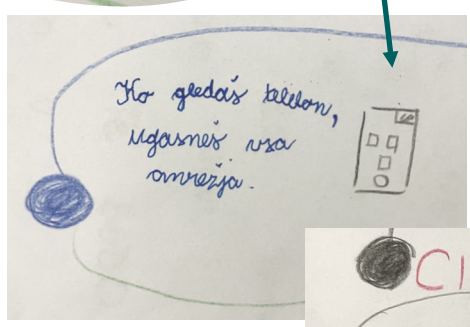 Ko gledaš telefon,
ugasneš vsa
omrežja.
CI